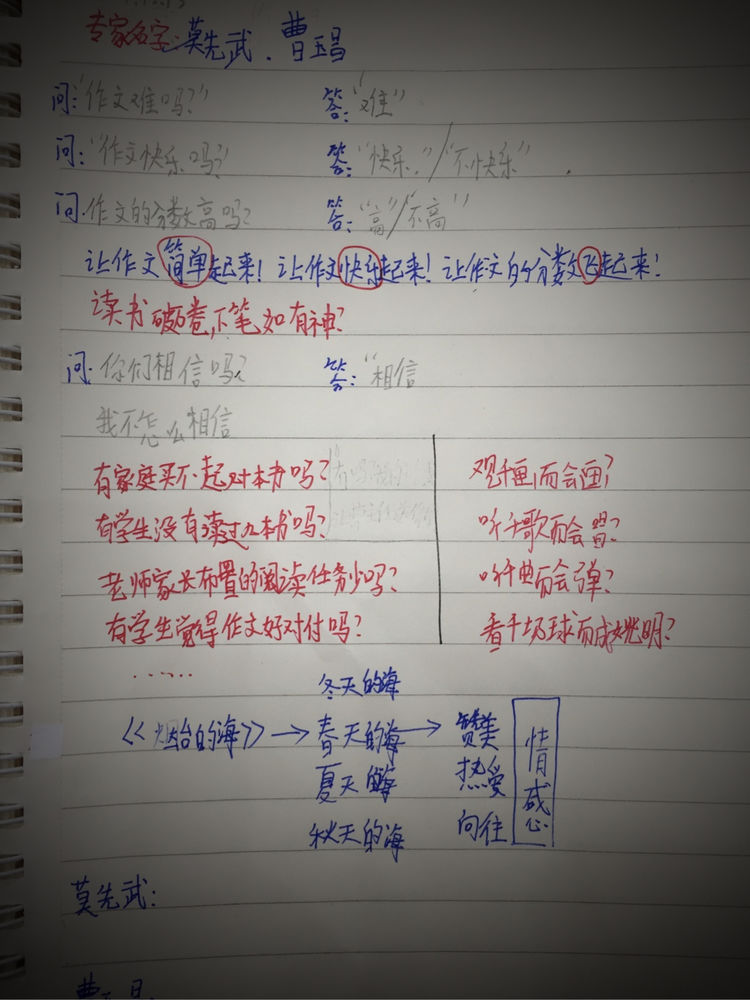 专家名字:莫先武、曹玉昌
问:“作文难吗?” 答:“难”
问:“作文快乐吗? 答:“快乐.”/“不快乐”
问.作文的分数高吗? 答:“高”/“不高”
让作文简单起来!让作文快乐起来!让作文的分数飞起来!
读书破卷,下笔如有神?
问.你们相信吗? 答:“相信
我不怎么相信
有家庭买不起对本书吗? 观千画,而会画?
有学生没有读过九本书吗? 听千歌而会唱?
老师家长布置的阅读任务少吗? 听千曲而会弹?
有学生觉得作文好对付吗? 看千场球而成姚明?
……
冬天的海
《烟台的海》→春天的海→赞美
夏天的海 热爱
秋天的海 向往
情感
莫先武: